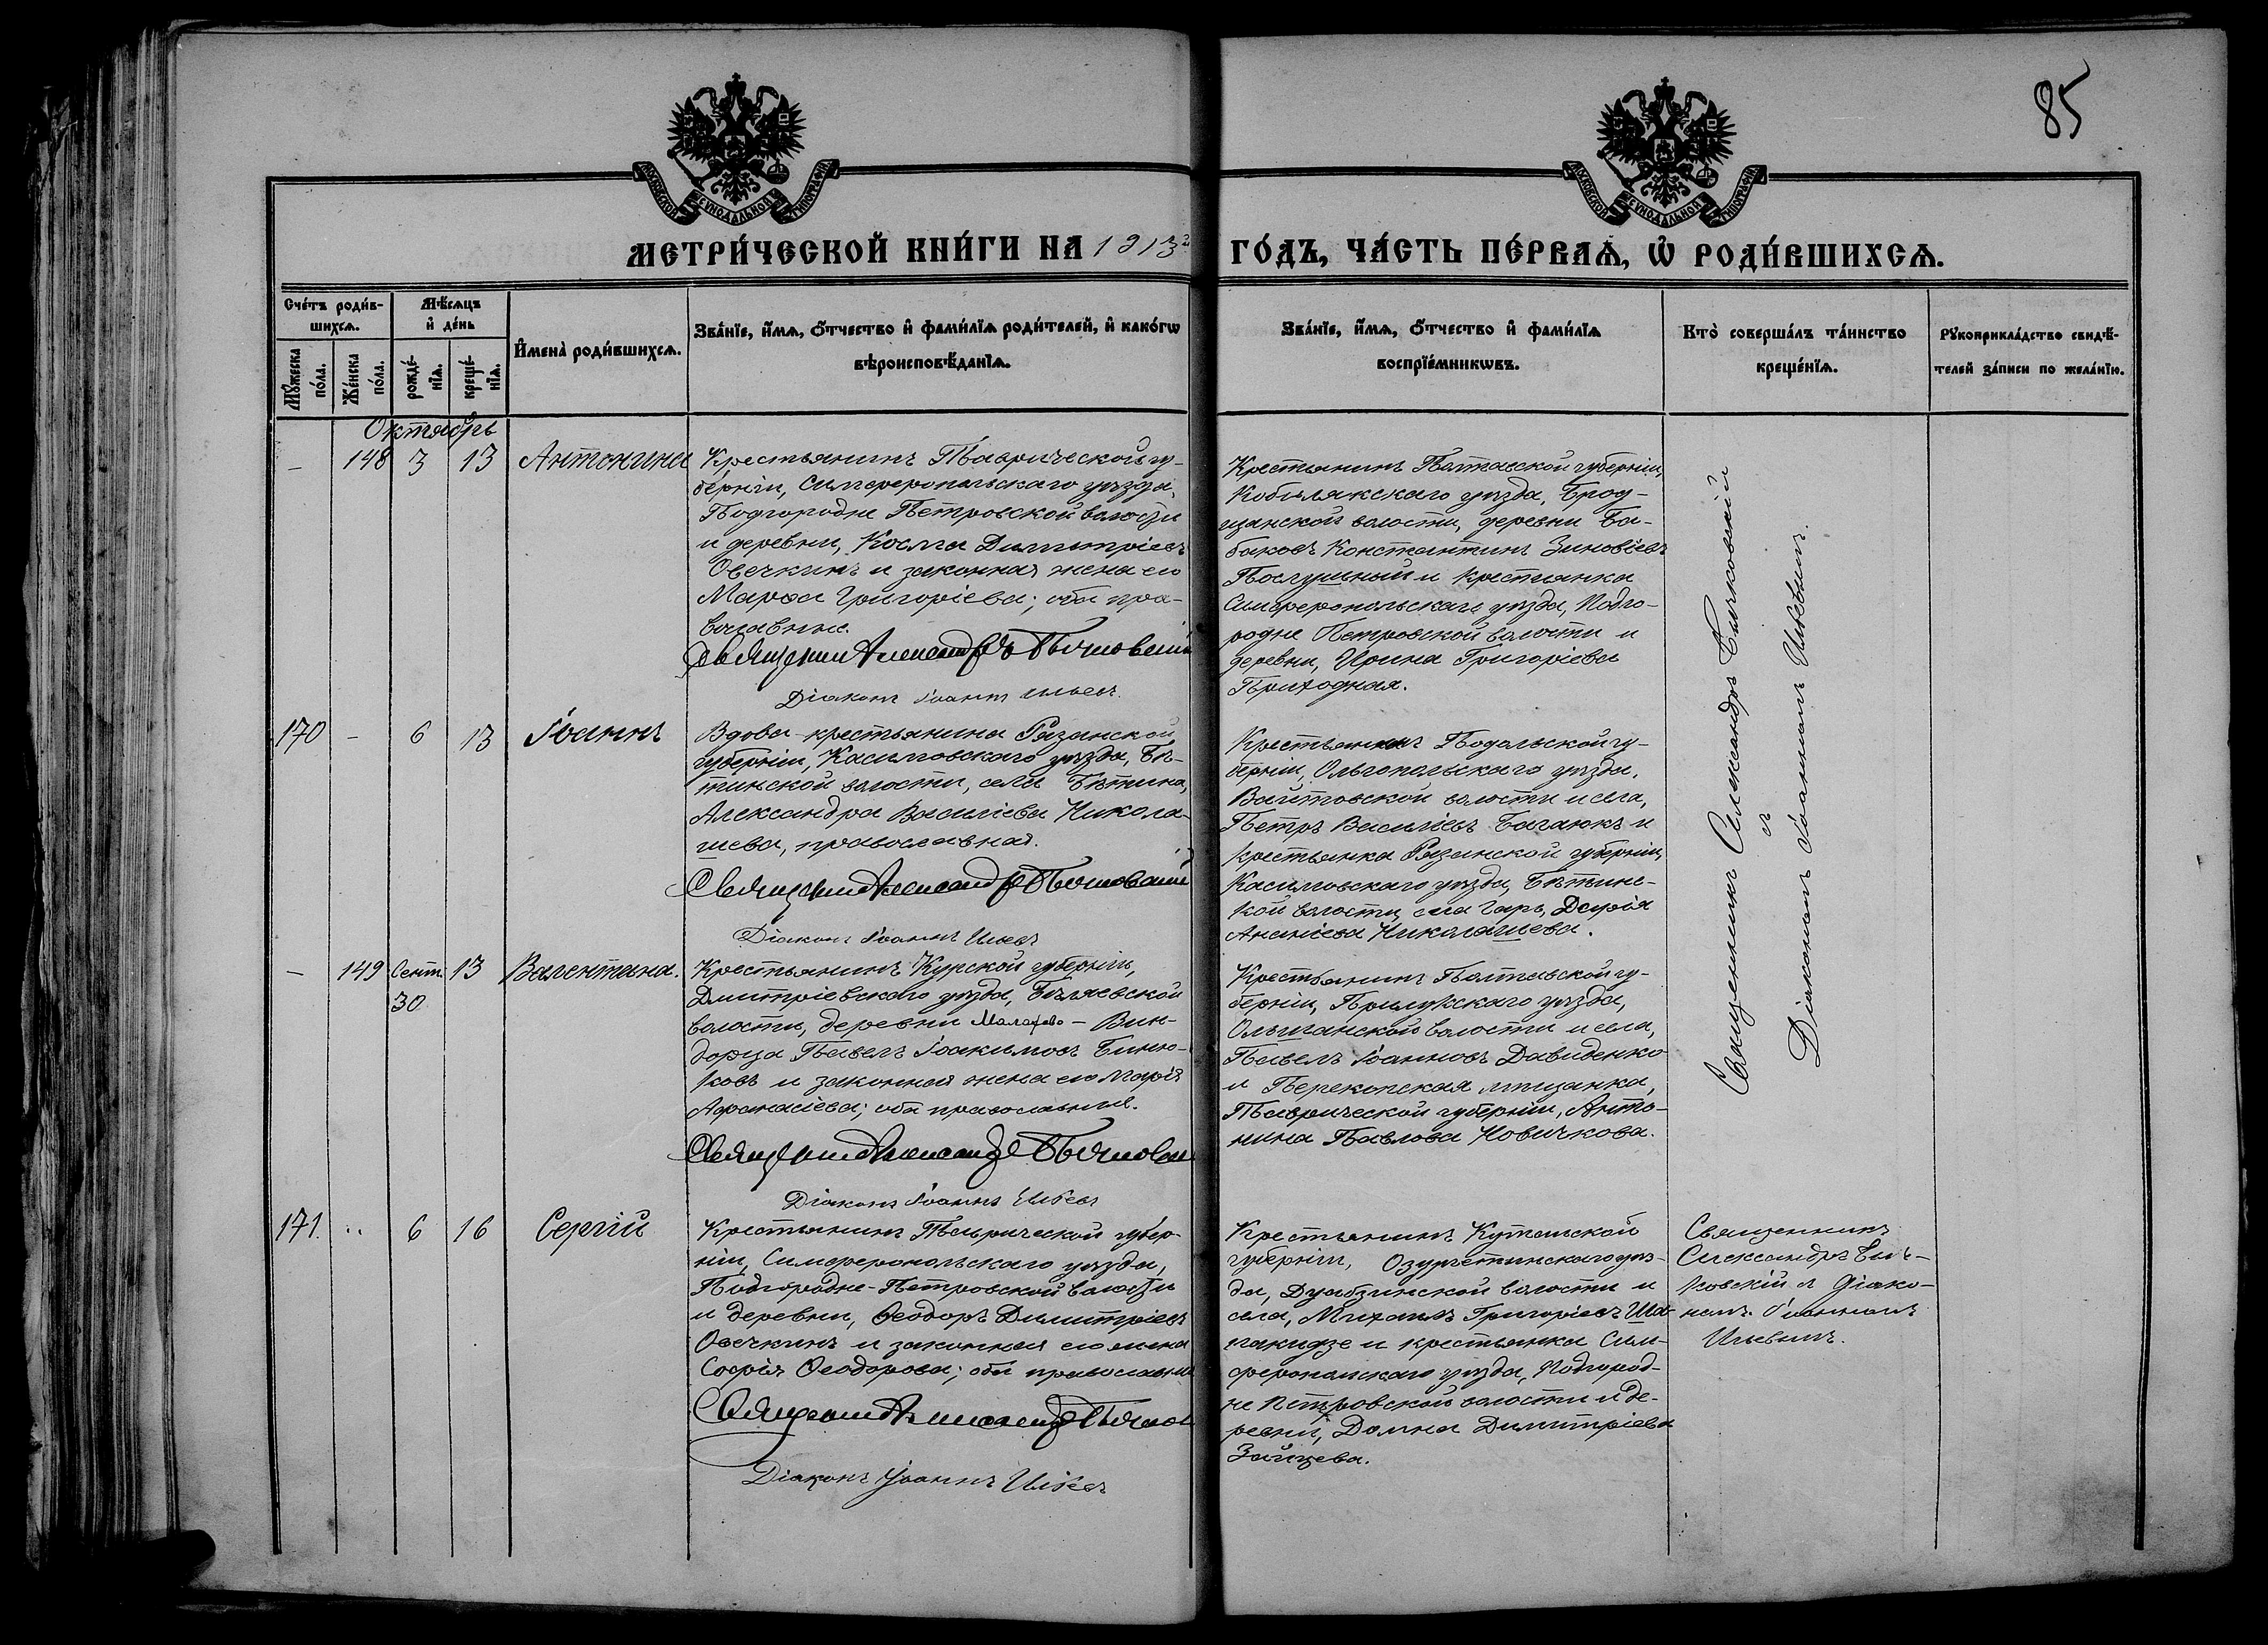 85
МОСКОВСКОЙ СѴНОДАЛЬНОЙ ТИПОГРАФІИ
МОСКОВСКОЙ СѴНОДАЛЬНОЙ ТИПОГРАФІИ
МЕТРИ́ЧЕСКОЙ КНИ́ГИ НА 1913 ГО́ДЪ, ЧА́СТЬ ПЕ́РВАѦ, Ѡ РОДИ́ВШИХСѦ.
Сче́тъ роди́в-
шихсѧ.
Мѣ́сѧцъ
и де́нь
Мꙋ́жеска
по́ла.
Же́нска
по́ла.
рожде́-
нїѧ.
креще́-
нїѧ.
Имена̀ роди́вшихсѧ.
Зва́нїе, и́мѧ, ѻ́тчество и фами́лїѧ роди́телей, и како́гѡ
вѣроисповѣ́данїѧ.
Зва́нїе, и́мѧ, ѻ́тчество и фами́лїѧ
воспрїе́мникѡвъ.
Кто̀ соверша́лъ та́инство
креще́нїѧ.
Рꙋкоприкла́дство свидѣ́-
телей за́писи по жела́нїю.
Октябрь
— 148 3 13 Антонина
Крестьянинъ Таврической гу-
берніи, Симферопольскаго уѣзда,
Подгородне Петровской волости
и деревни, Косма Димитріевъ
Овечкинъ и законная жена его
Марѳа Григоріева; оба пра-
вославные.
Священникъ Александръ
Діаконъ Іоаннъ Ильевъ.
Крестьянинъ Полтавской губерніи,
Кобелякскаго уѣзда, Брод-
щанской волости, деревни Ба-
баковъ Константинъ Зиновіевъ
Послушный и крестьянка
Симферопольскаго уѣзда, Подго-
родне Петровской волости и
деревни, Ирина Григоріева
Приходная.
Священникъ Александръ
и
Діаконъ Іоанномъ Ильевымъ.
170 – 6 13 Іоаннъ
Вдова крестьянина Рязанской
губерніи, Касимовскаго уѣзда, Бѣ-
тинской волости, села Бѣтина,
Александра Васильева Никола-
шева, православная.
Священникъ Александръ
Діаконъ Іоаннъ Ильевъ
Крестьянинъ Подольской гу-
берніи, Ольгопольскаго уѣзда,
Вайтовской волости и села,
Петръ Васильевъ Багаюкъ и
крестьянка Рязанской губерніи,
Касимовскаго уѣзда, Бѣтинс-
кой волости, села Гарь, Дарія
Ананіева Николашева.
— 149 Сент. 30 13 Валентина.
Крестьянинъ Курской губерніи,
Дмитріевскаго уѣзда, Бѣляевской
волости, деревни Малахово – Вин-
дорца Павелъ Іоакимовъ Биню-
ковъ и законная жена его Марія
Аѳанасіева; оба православные.
Священникъ Александръ
Діаконъ Іоаннъ Ильевъ
Крестьянинъ Полтавской гу-
берніи, Прилукскаго уѣзда,
Ольшанской волости и села,
Павелъ Іоанновъ Давиденко
и Перекопская мѣщанка,
Таврической губерніи, Анто-
нина Павлова Новичкова.
171. 6 16 Сергій
Крестьянинъ Таврической губер-
ніи, Симферопольскаго уѣзда,
Подгородне-Петровской волости
и деревни, Ѳеодоръ Димитріевъ
Овечкинъ и законная его жена
Софія Ѳеодорова; оба православные
Священникъ Александръ
Діаконъ Іоаннъ Ильевъ
Крестьянинъ Кутаисской
губерніи, Озургетинскаго уѣз-
да, Дуабзинской волости и
села, Михаилъ Григоріевъ
и крестьянка Сим-
феропольскаго уѣзда, Подгород-
не Петровской волости и де-
ревни, Домна Димитріева
Зайцева.
Священникъ
Александръ
и Діако-
номъ Іоанномъ
Ильевымъ.